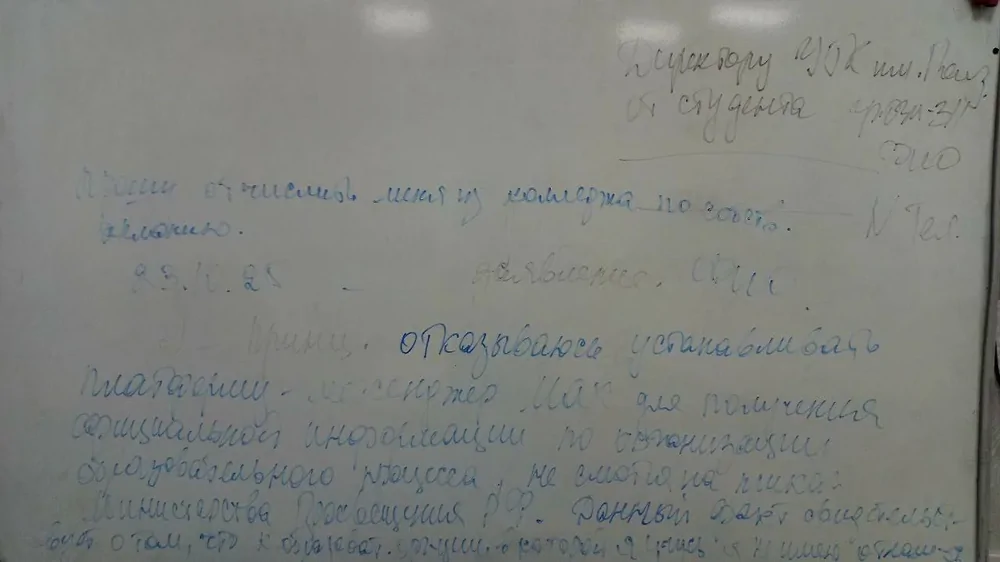 Директору УОК им. Каз.
от студента
ФИО
Прошу отчислить меня из колледжа по собств.
желанию.
N Тел.
заявление.
отказываюсь устанавливать
платформу - мессенджер MAX для получения
официальной информации по организации
образовательного процесса, не смотря на приказ
Министерства Просвещения РФ. Данный факт свидетельст-
вует о том, что к я не имею отноше-